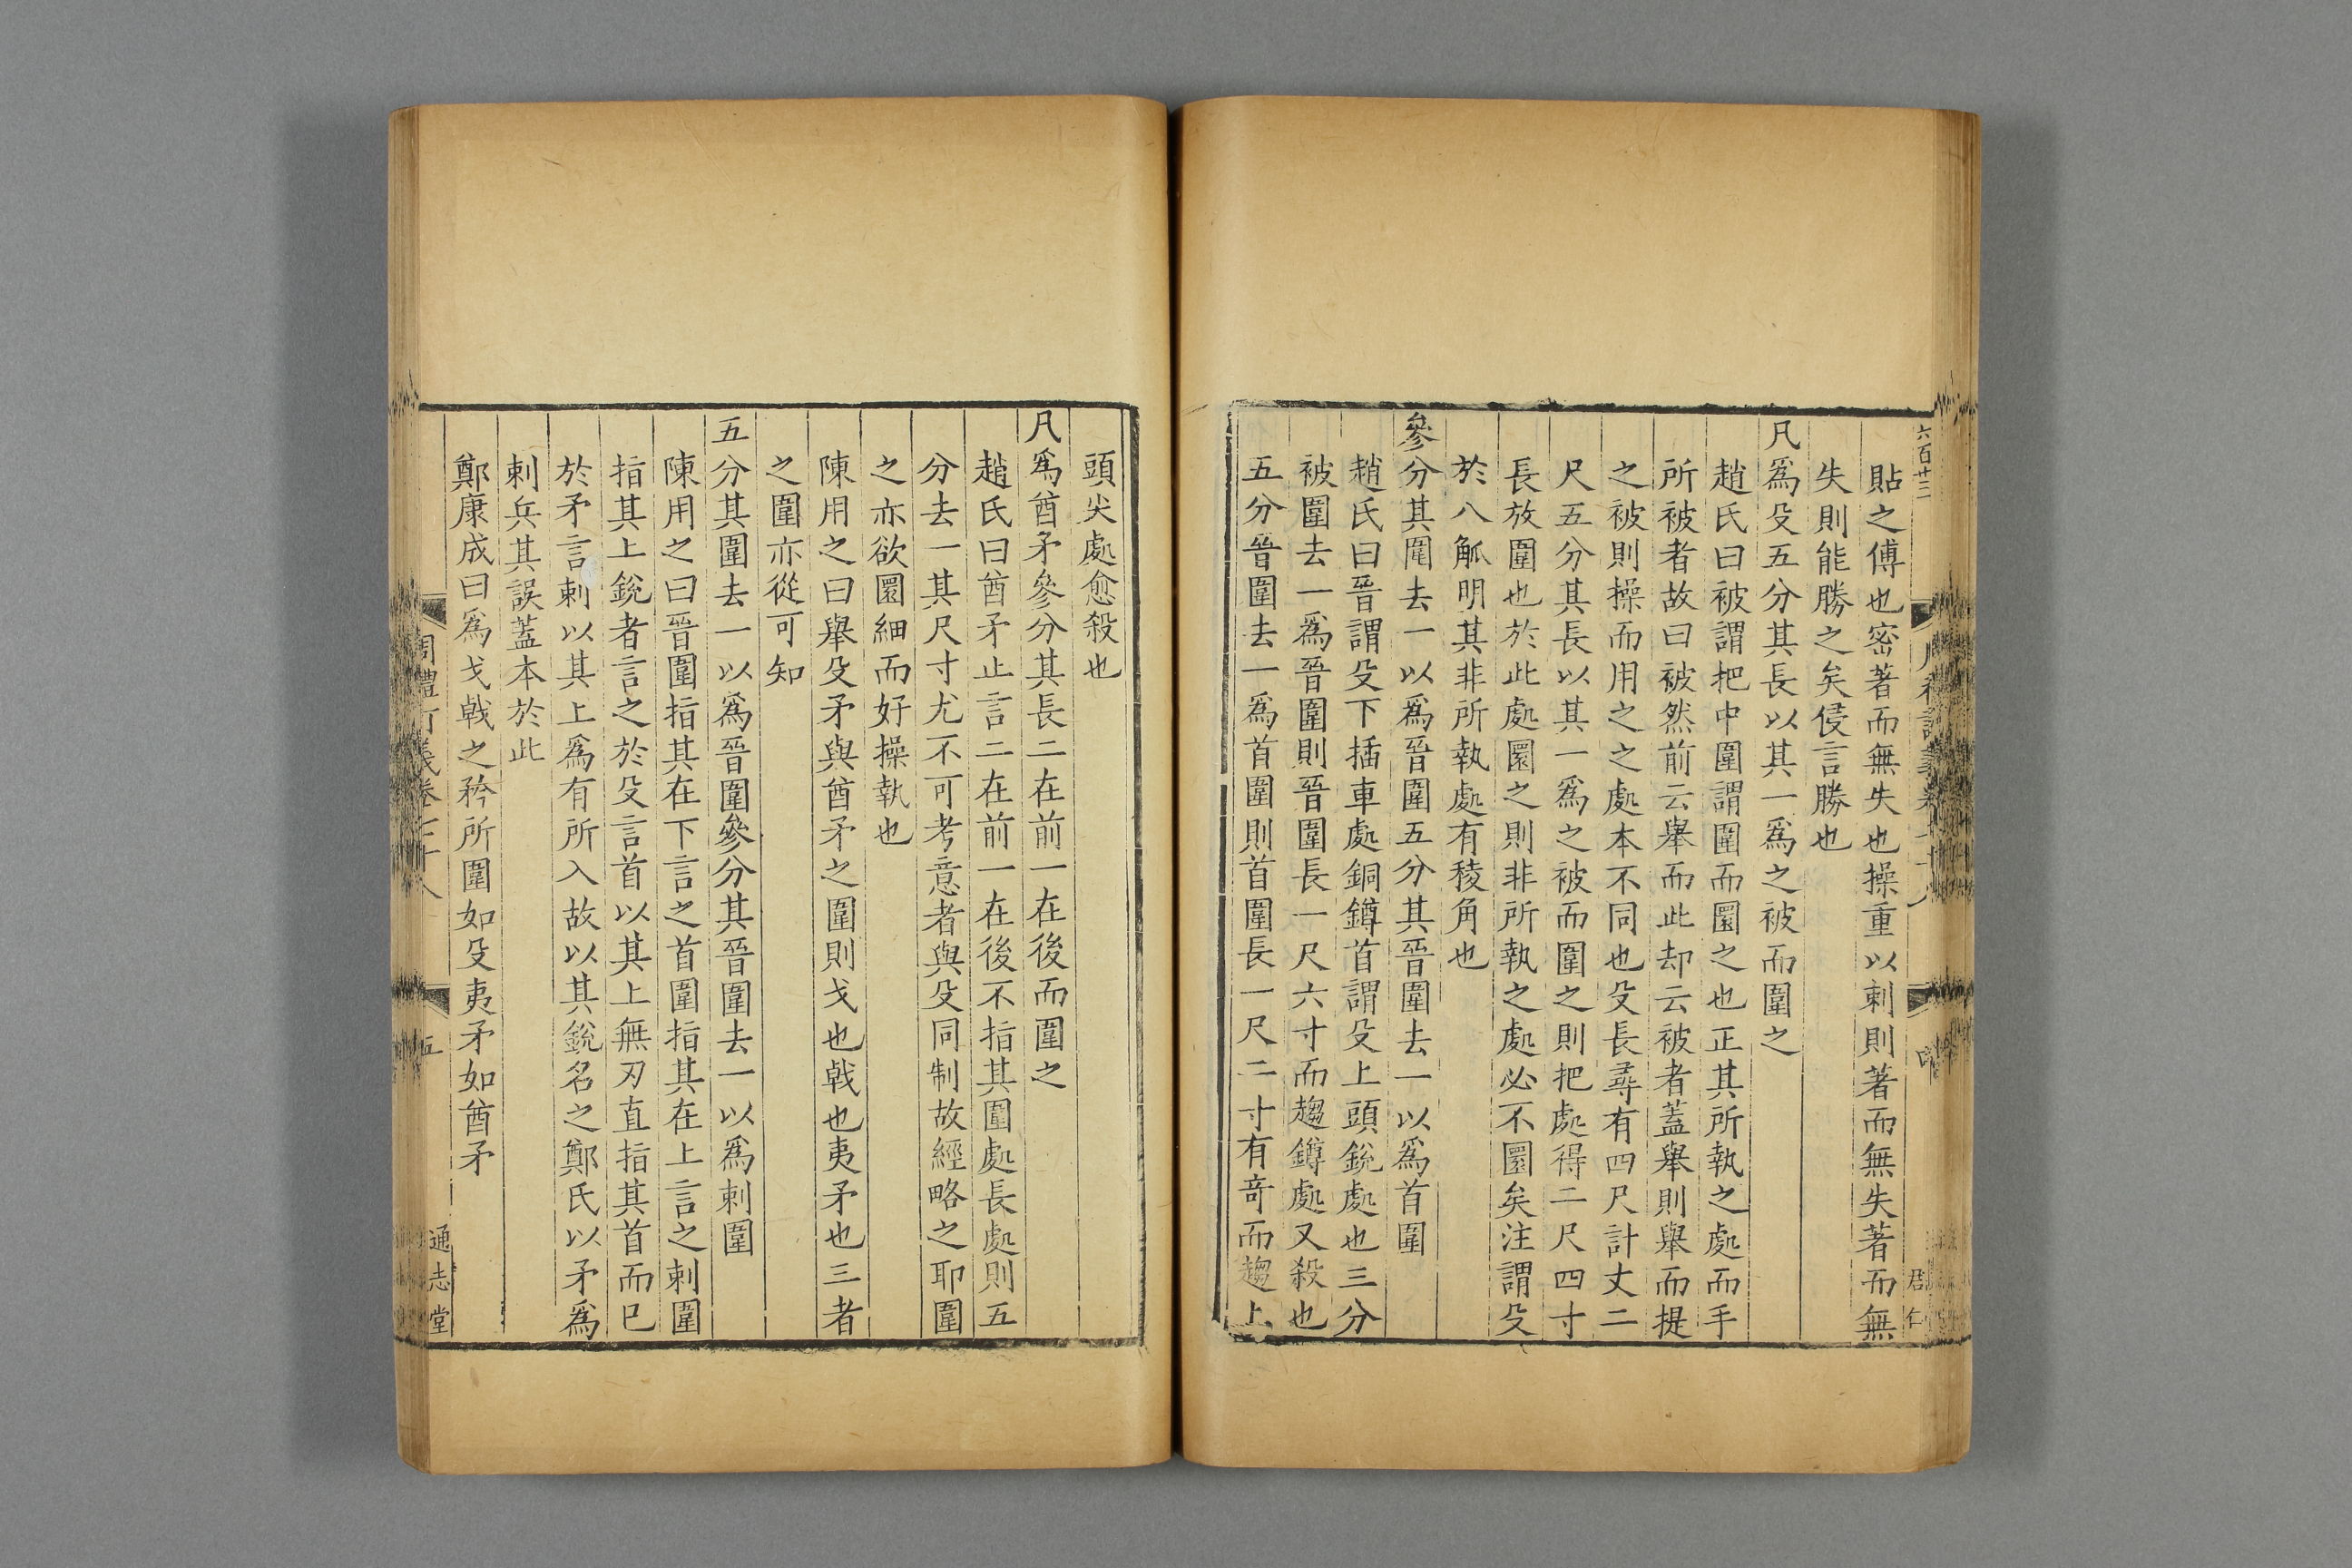 六百廿三
貼之傅也密著而無失也操重以刺則著而無失著而無
失則能勝之矣侵言勝也
凡爲殳五分其長以其一爲之被而圍之
趙氏曰被謂把中圍謂圍而圜之也正其所執之處而手
所被者故曰被然前云舉而此却云被者蓋舉則舉而提
之被則操而用之之處本不同也殳長尋有四尺計丈二
尺五分其長以其一爲之被而圍之則把處得二尺四寸
長放圍也於此處圜之則非所執之處必不圜矣注謂殳
於八觚明其非所執處有稜角也
參分其圍去一以爲晉圍五分其晉圍去一以爲首圍
趙氏曰晉謂殳下插車處銅鐏首謂殳上頭銳處也三分
被圍去一爲晉圍則晉圍長一尺六寸而趨鐏處又殺也
五分晉圍去一爲首圍則首圍長一尺二寸有奇而趨上
君仁
頭尖處愈殺也
凡爲酋矛參分其長二在前一在後而圍之
趙氏曰酋矛止言二在前一在後不指其圍處長處則五
分去一其尺寸尤不可考意者與殳同制故經略之耶圍
之亦欲圜細而好操執也
陳用之曰舉殳矛與酋矛之圍則戈也戟也夷矛也三者
之圍亦從可知
五分其圍去一以爲晉圍參分其晉圍去一以爲刺圍
陳用之曰晉圍指其在下言之首圍指其在上言之刺圍
指其上銳者言之於殳言首以其上無刃直指其首而已
於矛言刺以其上爲有所入故以其銳名之鄭氏以矛爲
刺兵其誤蓋本於此
鄭康成曰爲戈戟之矜所圍如殳夷矛如酋矛
周禮訂義卷七十八
五
通志堂